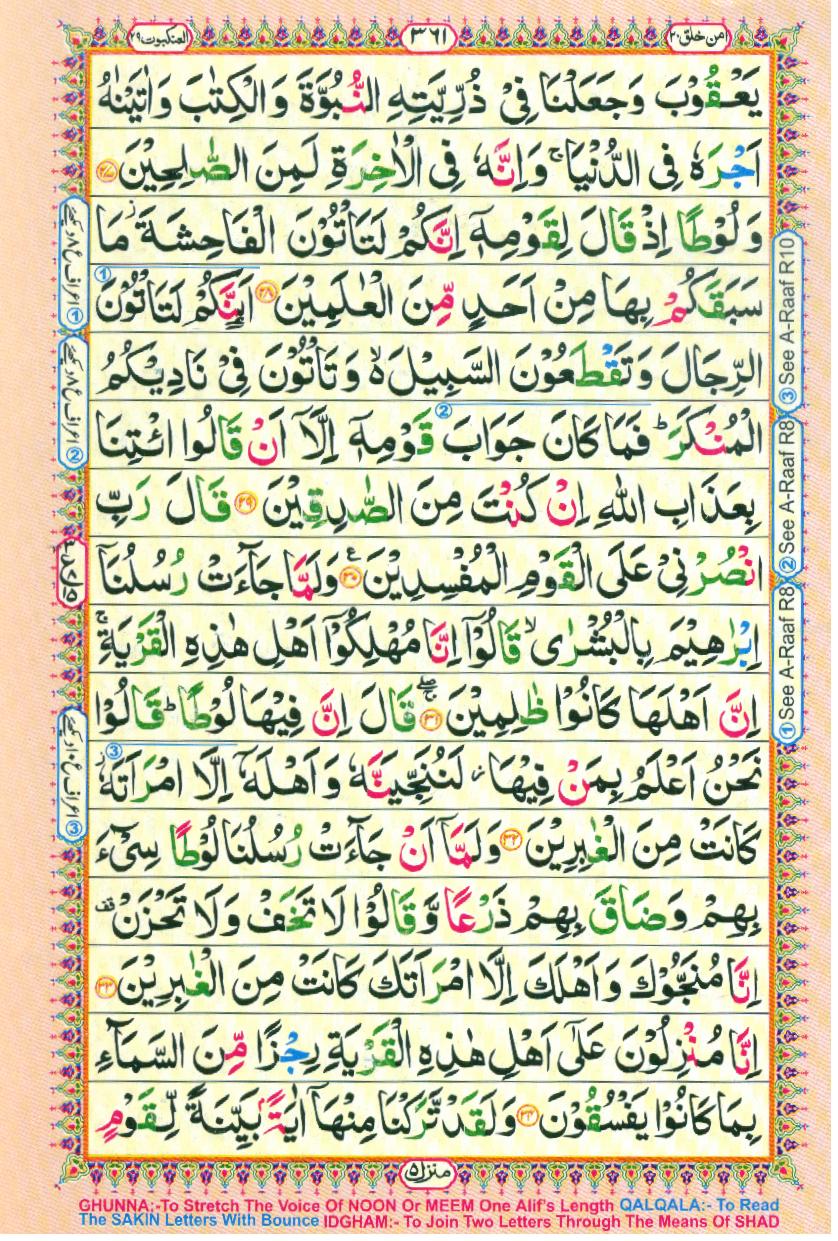 امن خلق ٢٠
٣٦١
العنكبوت ٢٩
يَعْقُوْبَ وَجَعَلْنَا فِىْ ذُرِّيَّتِهِ النُّبُوَّةَ وَالْكِتٰبَ وَاٰتَيْنٰهُ
اَجْرَهٗ فِى الدُّنْيَا ۚ وَاِنَّهٗ فِى الْاٰخِرَةِ لَمِنَ الصّٰلِحِيْنَ ٢٧
وَلُوْطًا اِذْ قَالَ لِقَوْمِهٖۤ اِنَّكُمْ لَتَاْتُوْنَ الْفَاحِشَةَ ز مَا
سَبَقَكُمْ بِهَا مِنْ اَحَدٍ مِّنَ الْعٰلَمِيْنَ ٢٨ اَئِنَّكُمْ لَتَاْتُوْنَ
الرِّجَالَ وَتَقْطَعُوْنَ السَّبِيْلَ ۙ٥ وَتَاْتُوْنَ فِىْ نَادِيْكُمُ
الْمُنْكَرَ ؕ فَمَا كَانَ جَوَابَ قَوْمِهٖۤ اِلَّاۤ اَنْ قَالُوا ائْتِنَا
بِعَذَابِ اللّٰهِ اِنْ كُنْتَ مِنَ الصّٰدِقِيْنَ ٢٩ قَالَ رَبِّ
انْصُرْنِىْ عَلَى الْقَوْمِ الْمُفْسِدِيْنَ ٣٠ ع وَلَمَّا جَآءَتْ رُسُلُنَاۤ
اِبْرٰهِيْمَ بِالْبُشْرٰى ۙ قَالُوْۤا اِنَّا مُهْلِكُوْۤا اَهْلِ هٰذِهِ الْقَرْيَةِ ۚ
اِنَّ اَهْلَهَا كَانُوْا ظٰلِمِيْنَ ٣١ قَالَ اِنَّ فِيْهَا لُوْطًا ؕ قَالُوْا
نَحْنُ اَعْلَمُ بِمَنْ فِيْهَا ز لَنُنَجِّيَنَّهٗ وَاَهْلَهٗۤ اِلَّا امْرَاَتَهٗ
كَانَتْ مِنَ الْغٰبِرِيْنَ ٣٢ وَلَمَّاۤ اَنْ جَآءَتْ رُسُلُنَا لُوْطًا سِىْٓءَ
بِهِمْ وَضَاقَ بِهِمْ ذَرْعًا وَّقَالُوْا لَا تَخَفْ وَلَا تَحْزَنْ قف
اِنَّا مُنَجُّوْكَ وَاَهْلَكَ اِلَّا امْرَاَتَكَ كَانَتْ مِنَ الْغٰبِرِيْنَ ٣٣
اِنَّا مُنْزِلُوْنَ عَلٰٓى اَهْلِ هٰذِهِ الْقَرْيَةِ رِجْزًا مِّنَ السَّمَآءِ
بِمَا كَانُوْا يَفْسُقُوْنَ ٣٤ وَلَقَدْ تَّرَكْنَا مِنْهَاۤ اٰيَةًۢ بَيِّنَةً لِّقَوْمٍ
منزل ٥
① See A-Raaf R8
② See A-Raaf R8
③ See A-Raaf R10
① اعراف ع ٨ دیکھیے
② اعراف ع ٨ دیکھیے
③ اعراف ع ١٠ دیکھیے
GHUNNA:-To Stretch The Voice Of NOON Or MEEM One Alif's Length QALQALA:- To Read
The SAKIN Letters With Bounce IDGHAM:- To Join Two Letters Through The Means Of SHAD